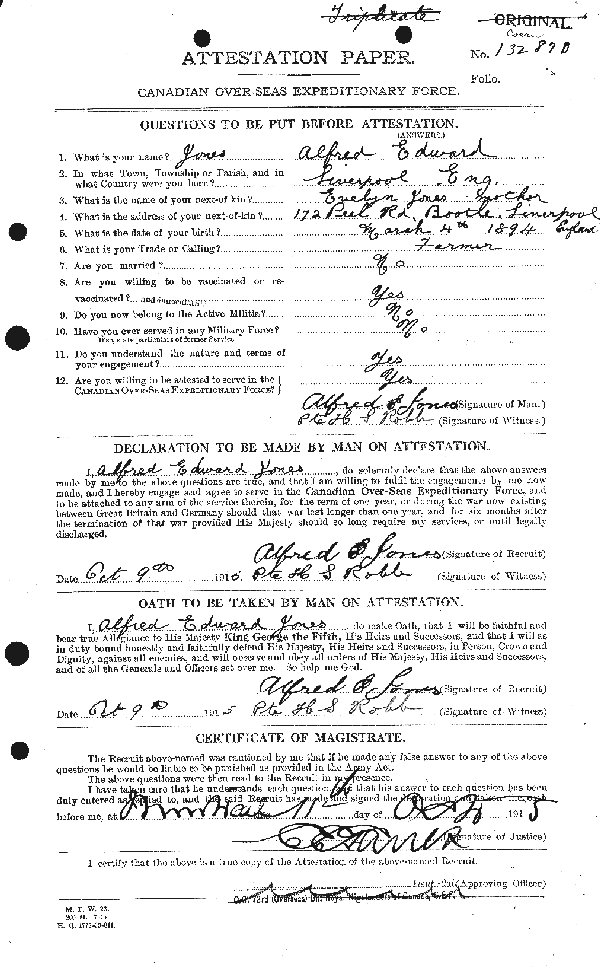 Triplicate
ORIGINAL
ATTESTATION PAPER.
No. 132870
Folio.
CANADIAN OVER-SEAS EXPEDITIONARY FORCE.
QUESTIONS TO BE PUT BEFORE ATTESTATION.
(ANSWERS)
1. What is your name? Jones Alfred Edward
2. In what Town, Township or Parish, and in
what Country were you born? Liverpool Eng.
3. What is the name of your next-of-kin? Evelyn Jones mother
4. What is the address of your next-of-kin? 172 Peel Rd. Bootle Liverpool
England
5. What is the date of your birth? March 4th 1894
6. What is your Trade or Calling? Farmer
7. Are you married? No
8. Are you willing to be vaccinated or re-
vaccinated? Yes
9. Do you now belong to the Active Militia? No
10. Have you ever served in any Military Force? No
If so, state particulars of former Service.
11. Do you understand the nature and terms of
your engagement? Yes
12. Are you willing to be attested to serve in the Yes
CANADIAN OVER-SEAS EXPEDITIONARY FORCE?
Alfred E Jones (Signature of Man.)
Pte H S Robb (Signature of Witness.)
DECLARATION TO BE MADE BY MAN ON ATTESTATION.
I, Alfred Edward Jones, do solemnly declare that the above answers
made by me to the above questions are true, and that I am willing to fulfil the engagements by me now
made, and I hereby engage and agree to serve in the Canadian Over-Seas Expeditionary Force, and
to be attached to any arm of the service therein, for the term of one year, or during the war now existing
between Great Britain and Germany should that war last longer than one year, and for six months after
the termination of that war provided His Majesty should so long require my services, or until legally
discharged.
Alfred E Jones (Signature of Recruit)
Date Oct 9th 1915 Pte H S Robb (Signature of Witness)
OATH TO BE TAKEN BY MAN ON ATTESTATION.
I, Alfred Edward Jones, do make Oath, that I will be faithful and
bear true Allegiance to His Majesty King George the Fifth, His Heirs and Successors, and that I will as
in duty bound honestly and faithfully defend His Majesty, His Heirs and Successors, in Person, Crown and
Dignity, against all enemies, and will observe and obey all orders of His Majesty, His Heirs and Successors,
and of all the Generals and Officers set over me. So help me God.
Alfred E Jones (Signature of Recruit)
Date Oct 9th 1915 Pte H S Robb (Signature of Witness)
CERTIFICATE OF MAGISTRATE.
The Recruit above-named was cautioned by me that if he made any false answer to any of the above
questions he would be liable to be punished as provided in the Army Act.
The above questions were then read to the Recruit in my presence.
I have taken care that he understands each question, and that his answer to each question has been
duly entered as replied to, and the said Recruit has made and signed the declaration and taken the oath
before me, at 11 day of Oct 1915
(Signature of Justice)
I certify that the above is a true copy of the Attestation of the above-named Recruit.
(Approving Officer)
M. F. W. 23.